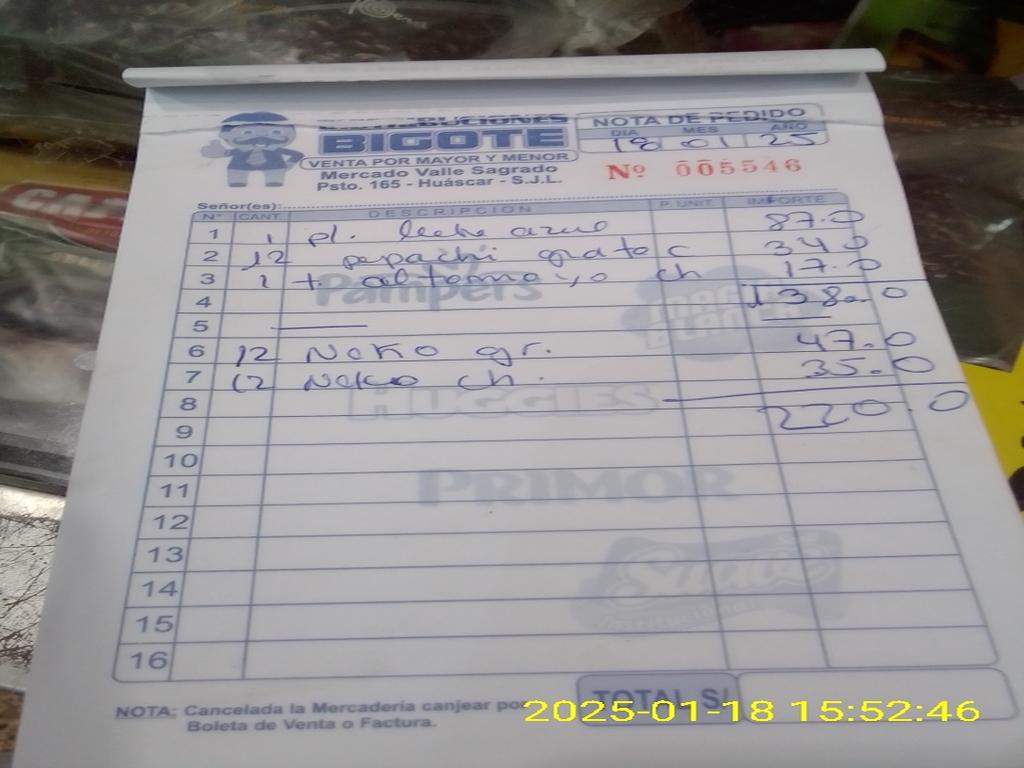 BIGOTE
VENTA POR MAYOR Y MENOR
Mercado Valle Sagrado
Psto. 165 - Huáscar - S.J.L.
NOTA DE PEDIDO
DIA MES AÑO
18 01 25
Nº 005546
Señor(es):
Nº CANT. DESCRIPCION P. UNIT. IMPORTE
1 1 pl. leche azul 87.0
2 12 c 34.0
3 1 + altomayo ch 17.0
4 138.0
5
6 12 Noko gr. 47.0
7 12 Noko ch. 35.0
8
9 220.0
10
11
12
13
14
15
16
Pampers
HUGGIES
PRIMOR
Suave
TOTAL S/
NOTA: Cancelada la Mercadería canjear por
Boleta de Venta o Factura.
2025-01-18 15:52:46